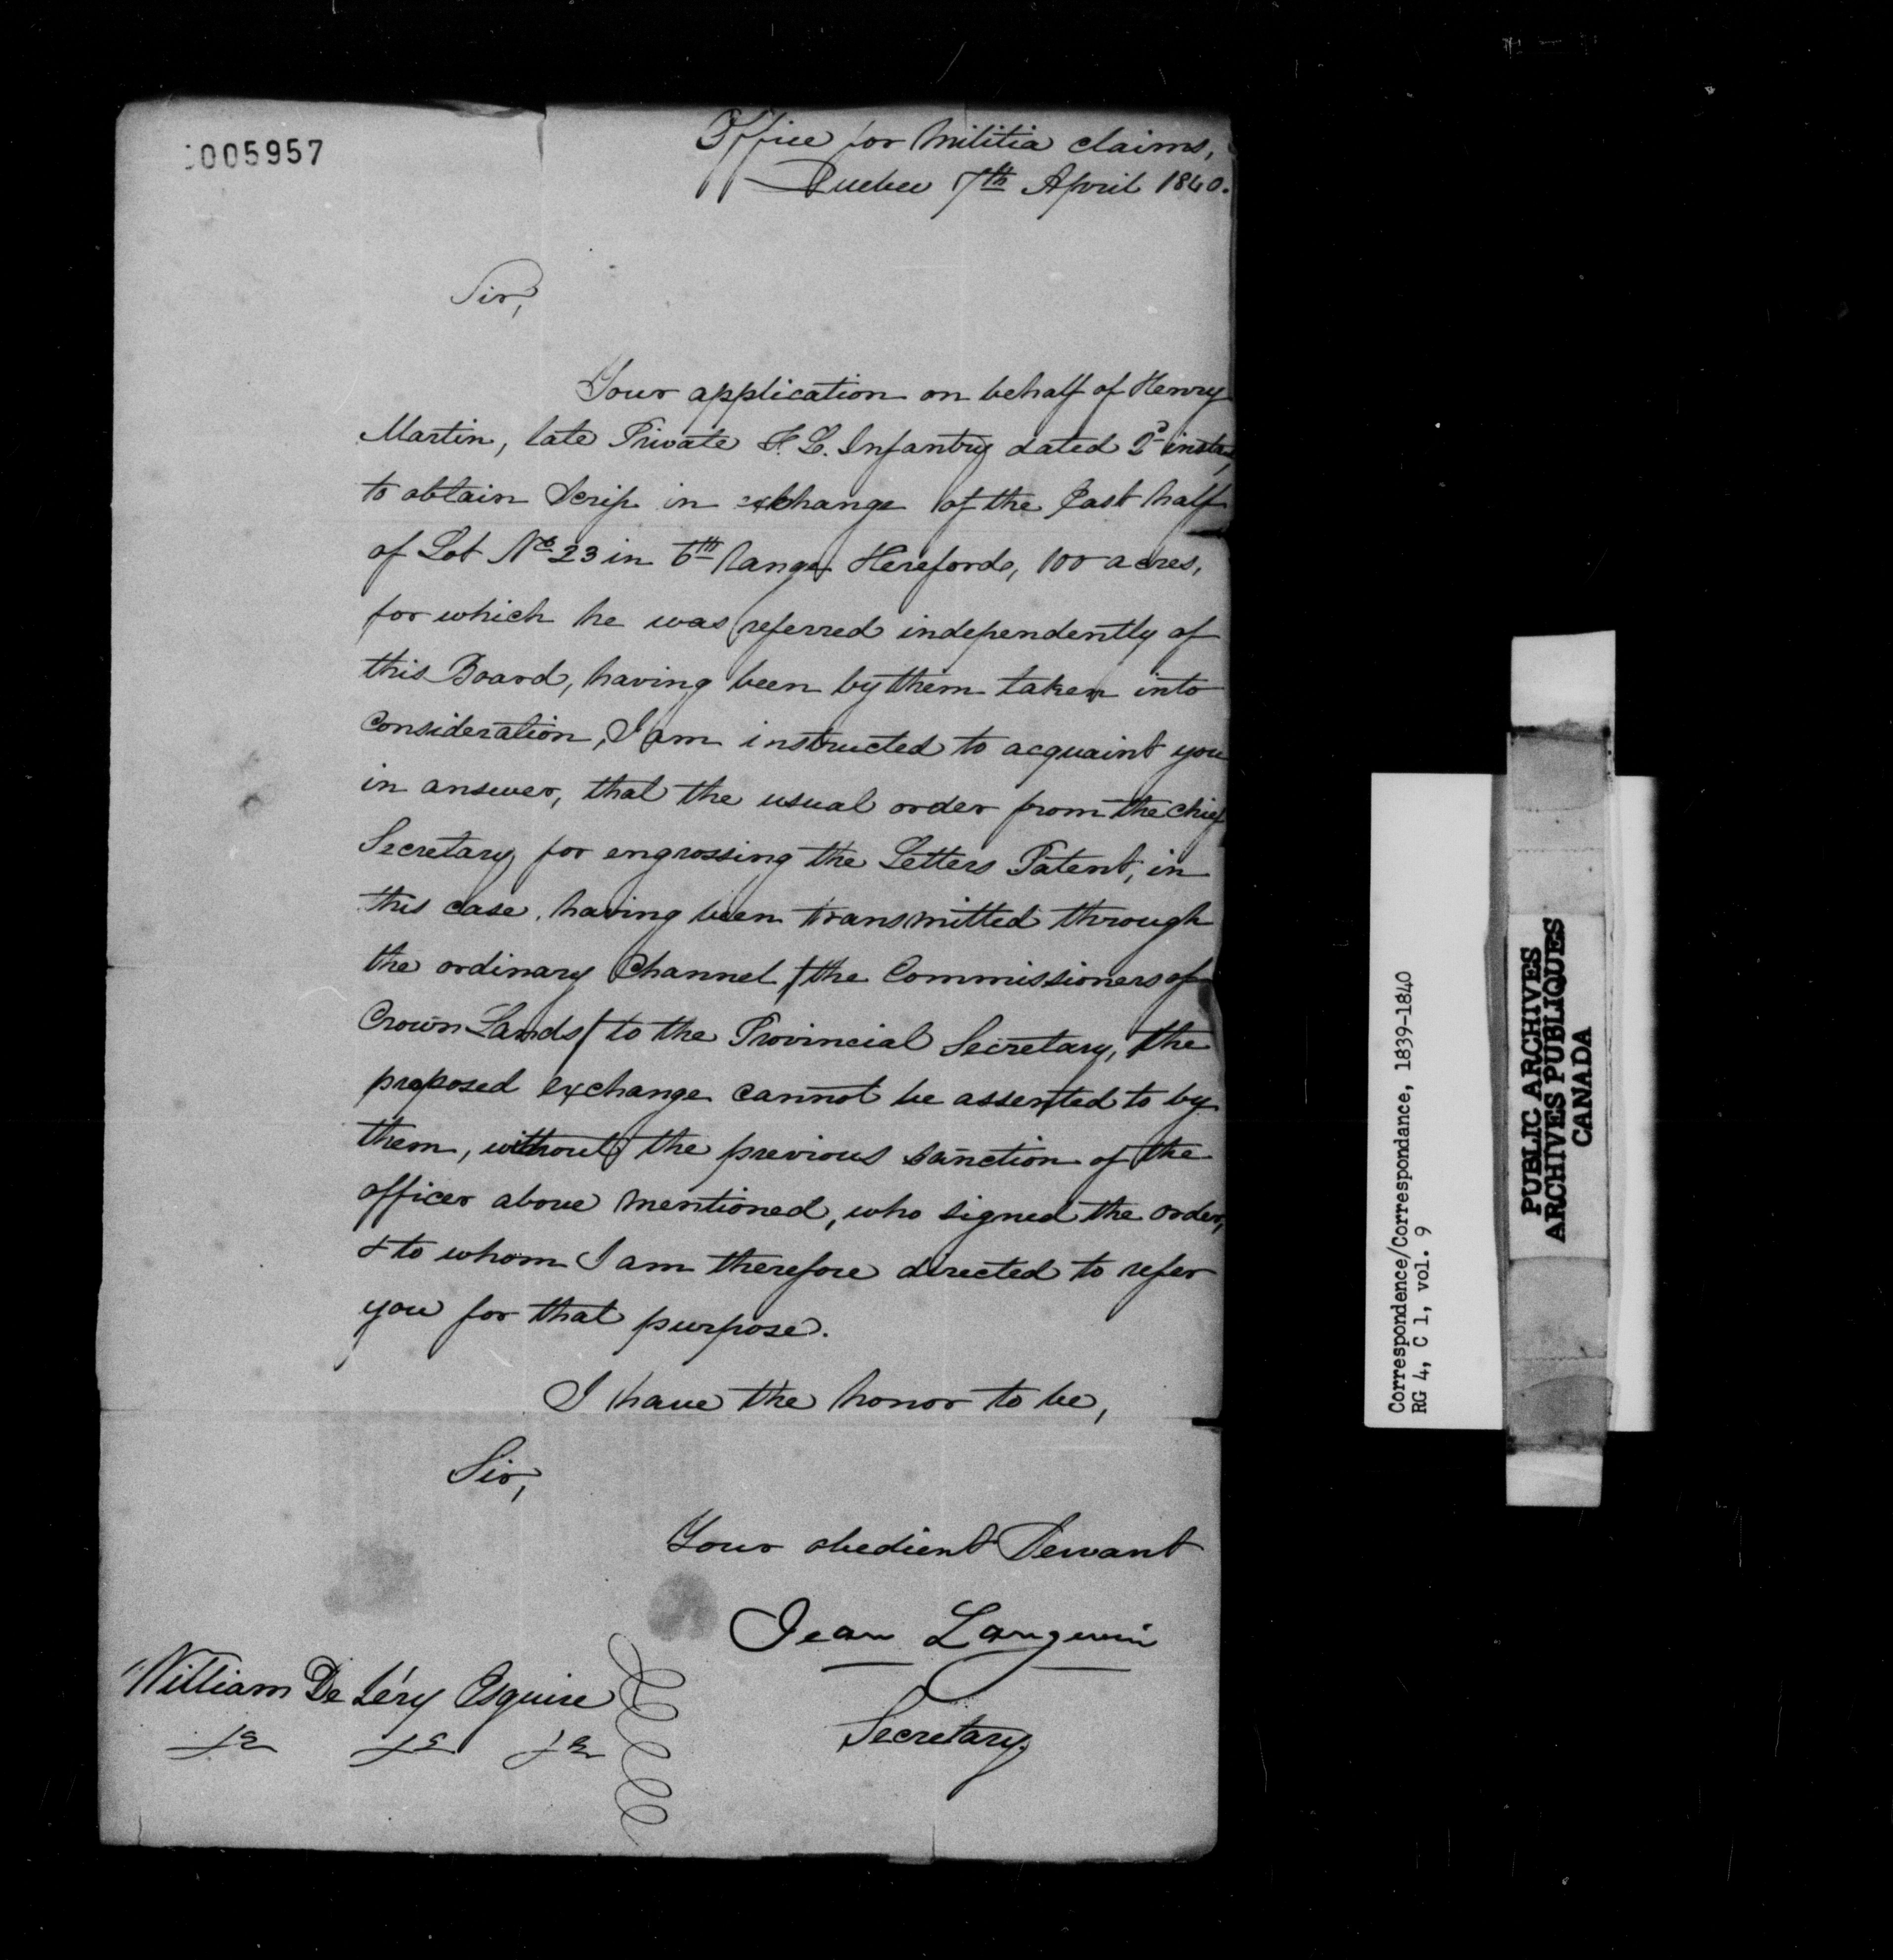 005957
Office for Militia claims,
Quebec 7th April 1840.
Sir,
Your application on behalf of Henry
Martin, late Private F. L. Infantry dated 2d instant,
to obtain Scrip in exchange of the East half
of Lot No 23 in 6th Range Hereford, 100 acres,
for which he was referred independently of
this Board, having been by them taken into
consideration, I am instructed to acquaint you
in answer, that the usual order from the Chief
Secretary for engrossing the Letters Patent, in
this case, having been transmitted through
the ordinary Channel (the Commissioners of
Crown Lands) to the Provincial Secretary, the
proposed exchange cannot be assented to by
them, without the previous sanction of the
officer above mentioned, who signed the order,
& to whom I am therefore directed to refer
you for that purpose.
I have the honor to be,
Sir,
Your obedient Servant
Jean Langevin
Secretary.
William De Léry Esquire
Correspondence/Correspondance, 1839-1840
RG 4, C 1, vol. 9
PUBLIC ARCHIVES
ARCHIVES PUBLIQUES
CANADA